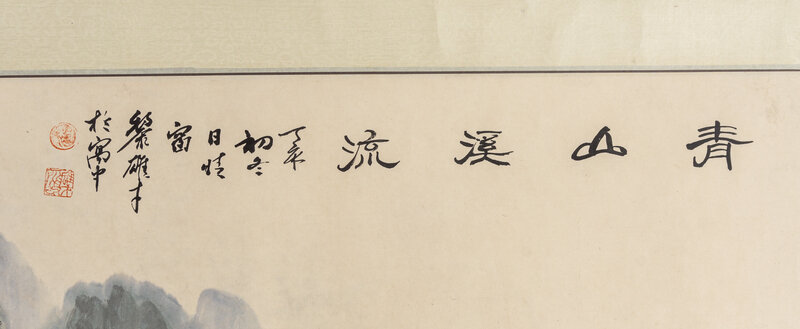 青山溪流
丁亥
初冬
日晴
窗
黎雄才
於寓中